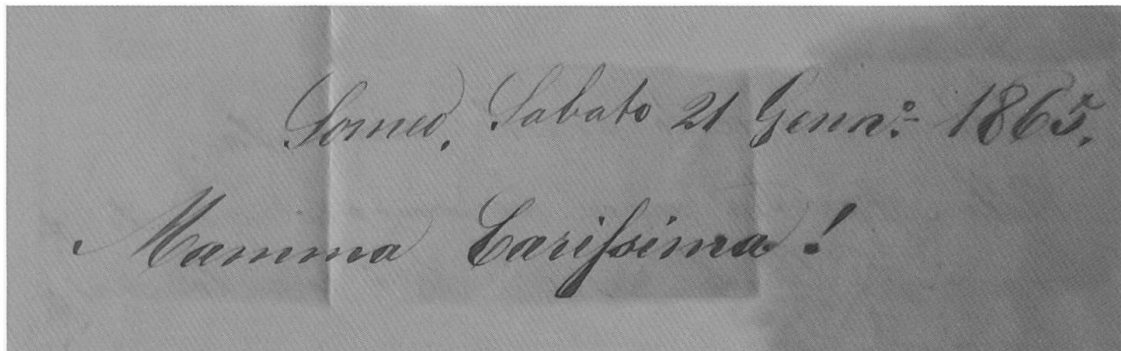 Someo, Sabato 21 Genn.º 1865.
Mamma Carissima!